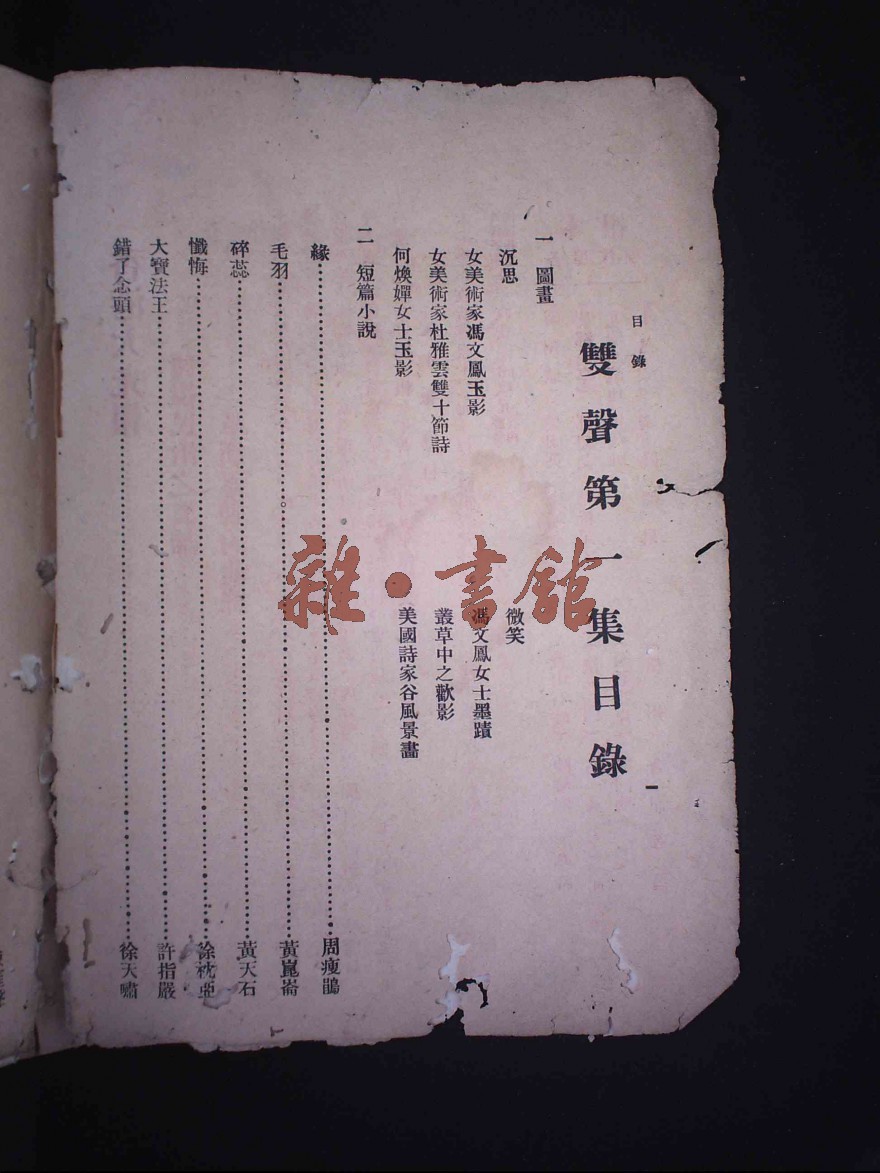 目錄
雙聲第一集目錄
一
一 圖畫
沉思 微笑
女美術家馮文鳳玉影 馮文鳳女士墨蹟
女美術家杜雅雲雙十節詩 叢草中之歡影
何煥嬋女士玉影 美國詩家谷風景畫
二 短篇小說
緣 周瘦鵑
毛羽 黃崑崙
碎蕊 黃天石
懺悔 徐枕亞
大寶法王 許指嚴
錯了念頭 徐天嘯
雜·書館